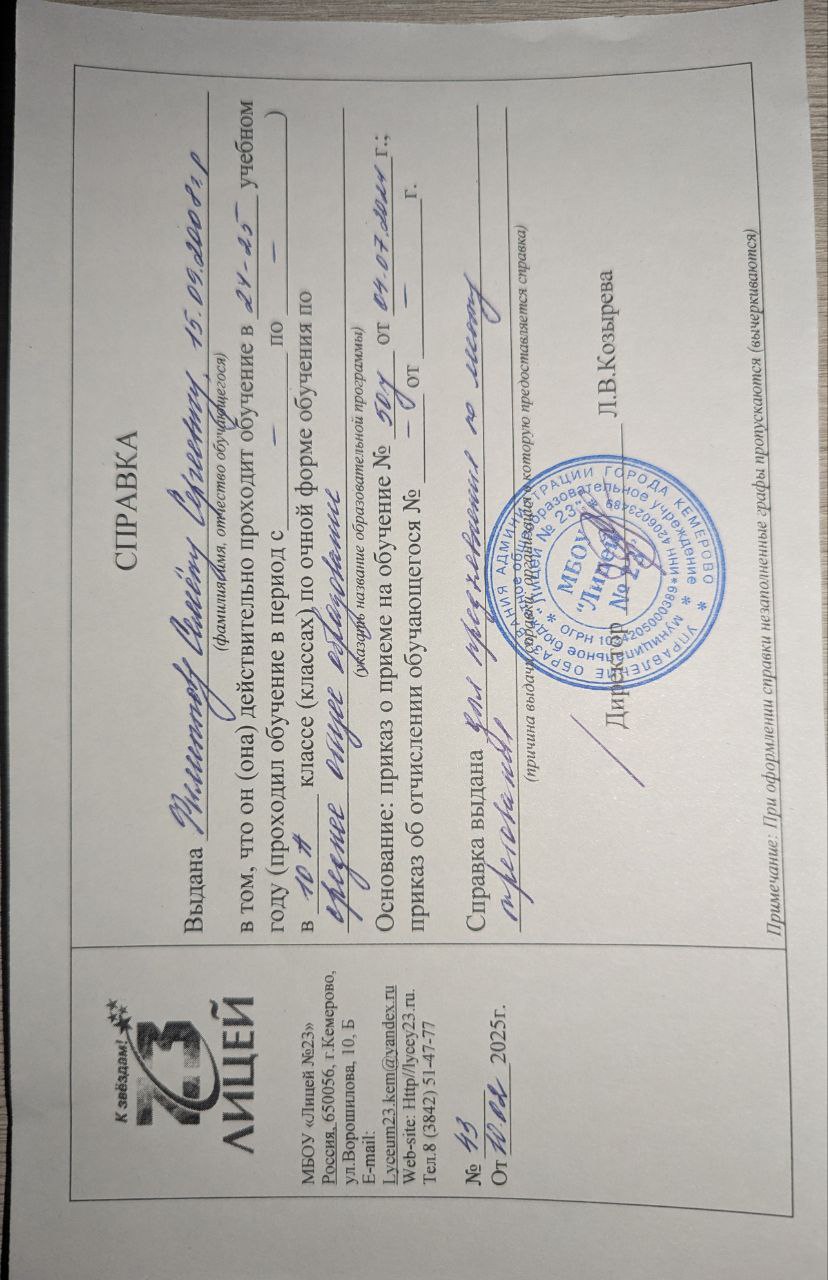 К звёздам!
23
ЛИЦЕЙ
МБОУ «Лицей №23»
Россия, 650056, г.Кемерово,
ул.Ворошилова, 10, Б
E-mail:
Lyceum23.kem@yandex.ru
Web-site: Http//lycey23.ru.
Тел.8 (3842) 51-47-77
№ 43
От 10.02 2025г.
СПРАВКА
Выдана Филиппову Семёну Сергеевичу, 15.09.2008 г.р
(фамилия, имя, отчество обучающегося)
в том, что он (она) действительно проходит обучение в 24-25 учебном
году (проходил обучение в период с – по – )
в 10 А классе (классах) по очной форме обучения по
среднее общее образование
(указать название образовательной программы)
Основание: приказ о приеме на обучение № 50у от 04.07.2024 г.;
приказ об отчислении обучающегося № – от – г.
Справка выдана для предъявления по месту
требования
(причина выдачи справки, организация в которую предоставляется справка)
Директор Л.В.Козырева
УПРАВЛЕНИЕ ОБРАЗОВАНИЯ АДМИНИСТРАЦИИ ГОРОДА КЕМЕРОВО
муниципальное бюджетное общеобразовательное учреждение
"Лицей № 23"
МБОУ
"Лицей
№ 23"
Примечание: При оформлении справки незаполненные графы пропускаются (вычеркиваются)